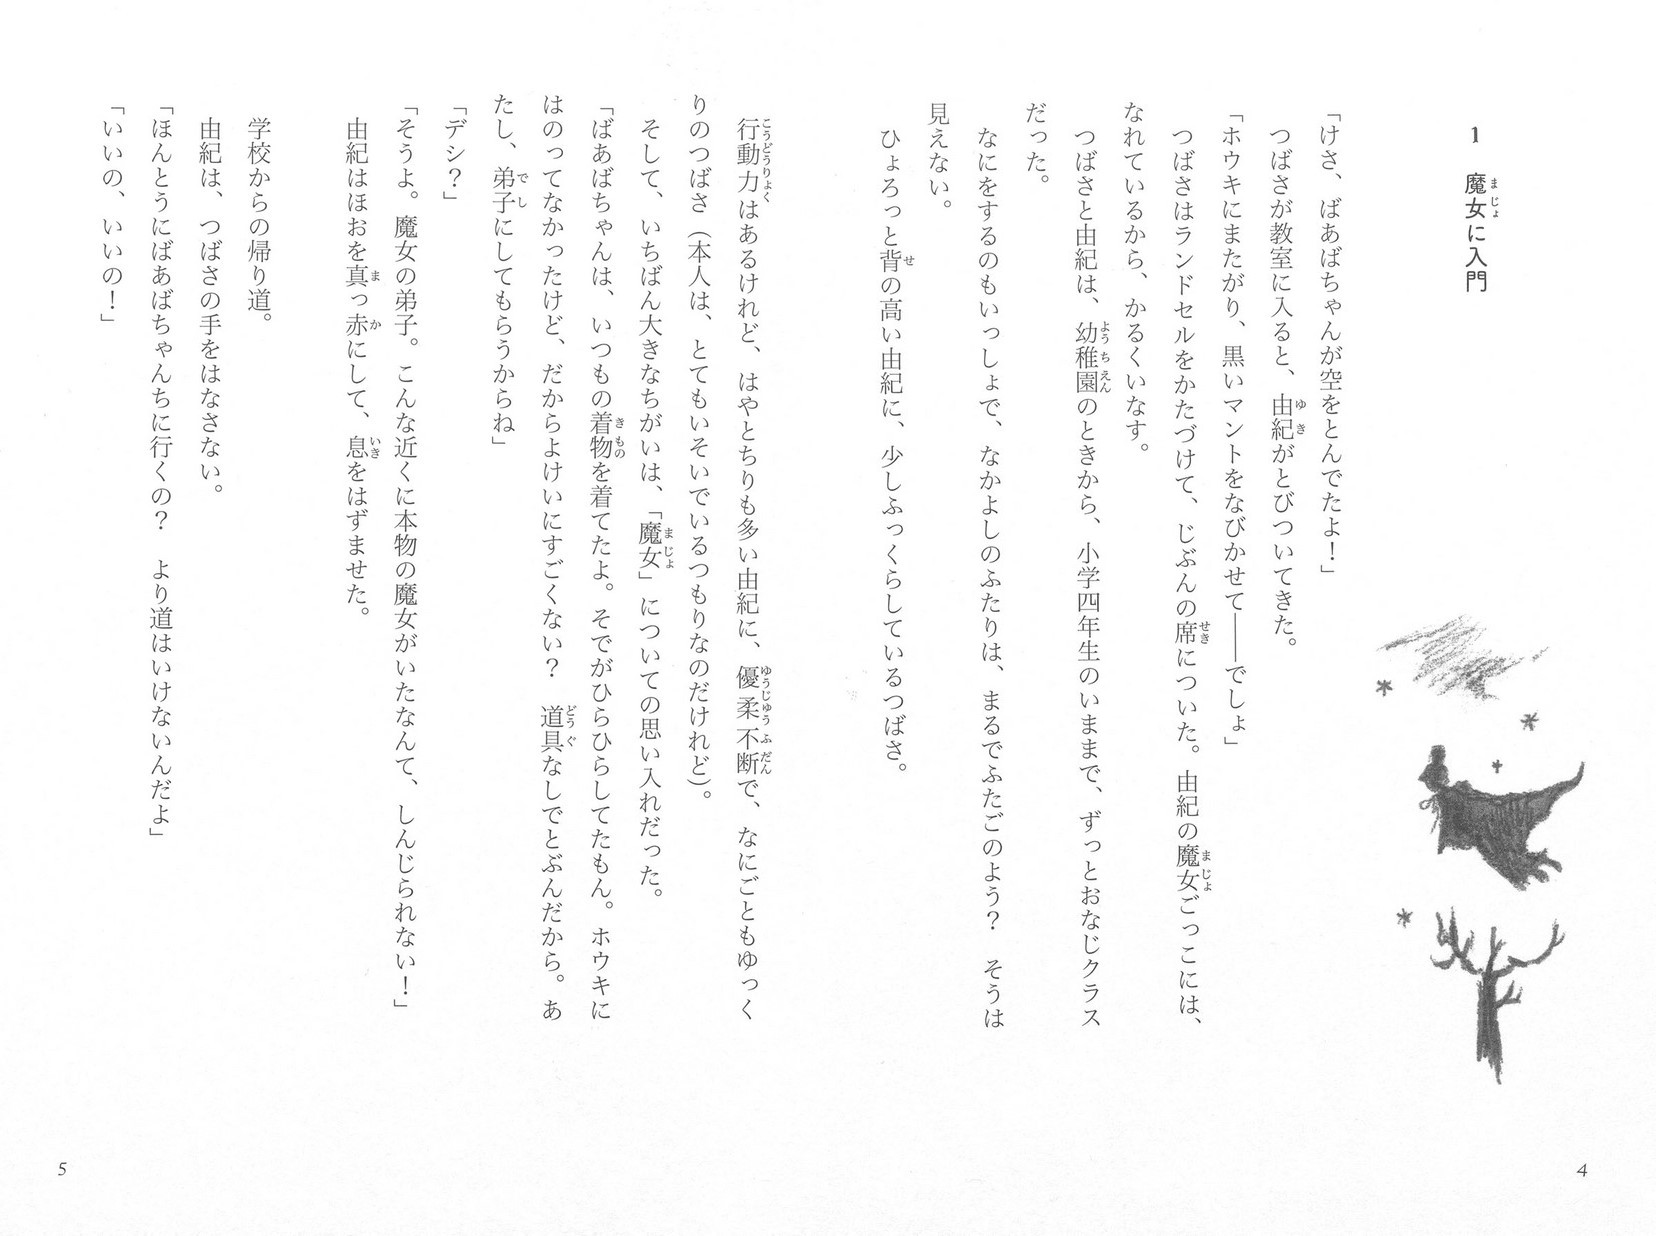 1 魔女に入門
「けさ、ばあばちゃんが空をとんでたよ！」
つばさが教室に入ると、由紀がとびついてきた。
「ホウキにまたがり、黒いマントをなびかせて――でしょ」
つばさはランドセルをかたづけて、じぶんの席についた。由紀の魔女ごっこには、
なれているから、かるくいなす。
つばさと由紀は、幼稚園のときから、小学四年生のいままで、ずっとおなじクラス
だった。
なにをするのもいっしょで、なかよしのふたりは、まるでふたごのよう？　そうは
見えない。
ひょろっと背の高い由紀に、少しふっくらしているつばさ。
4
行動力はあるけれど、はやとちりも多い由紀に、優柔不断で、なにごともゆっく
りのつばさ（本人は、とてもいそいでいるつもりなのだけれど）。
そして、いちばん大きなちがいは、「魔女」についての思い入れだった。
「ばあばちゃんは、いつもの着物を着てたよ。そでがひらひらしてたもん。ホウキに
はのってなかったけど、だからよけいにすごくない？　道具なしでとぶんだから。あ
たし、弟子にしてもらうからね」
「デシ？」
「そうよ。魔女の弟子。こんな近くに本物の魔女がいたなんて、しんじられない！」
由紀はほおを真っ赤にして、息をはずませた。
学校からの帰り道。
由紀は、つばさの手をはなさない。
「ほんとうにばあばちゃんちに行くの？　より道はいけないんだよ」
「いいの、いいの！」
5